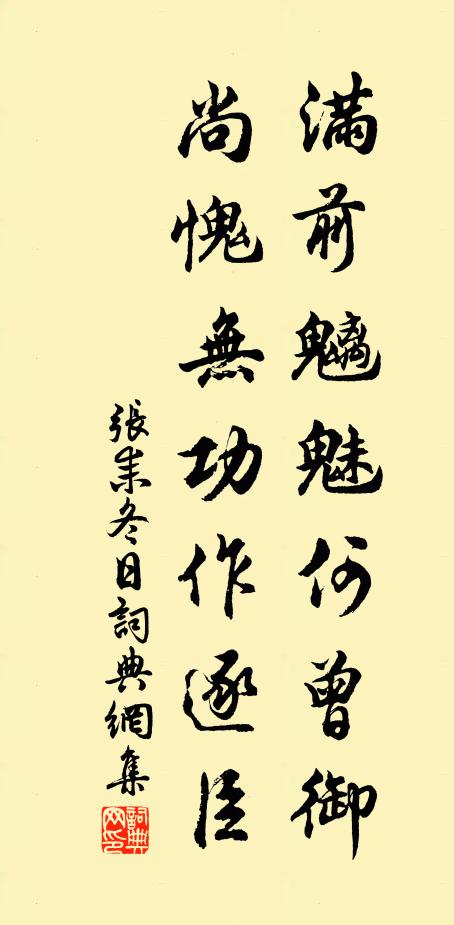 滿前魑魅何曾御
尚愧無功作逐臣
張耒冬日詞典網集
詞典網印